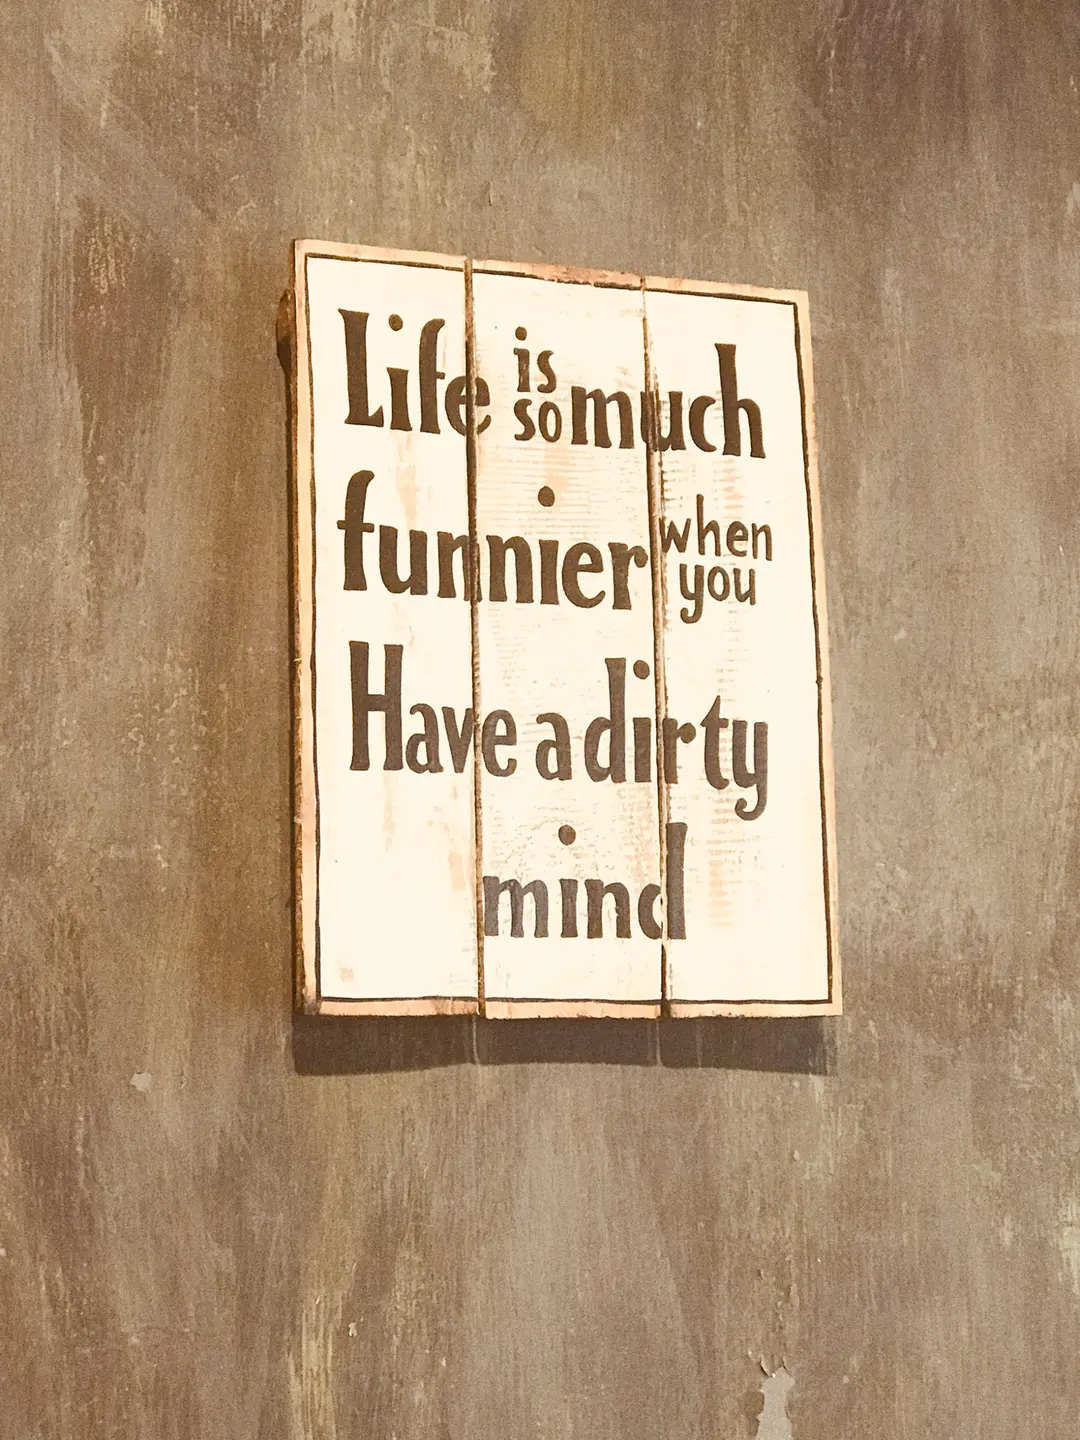 Life is so much
funnier when you
Have a dirty
mind